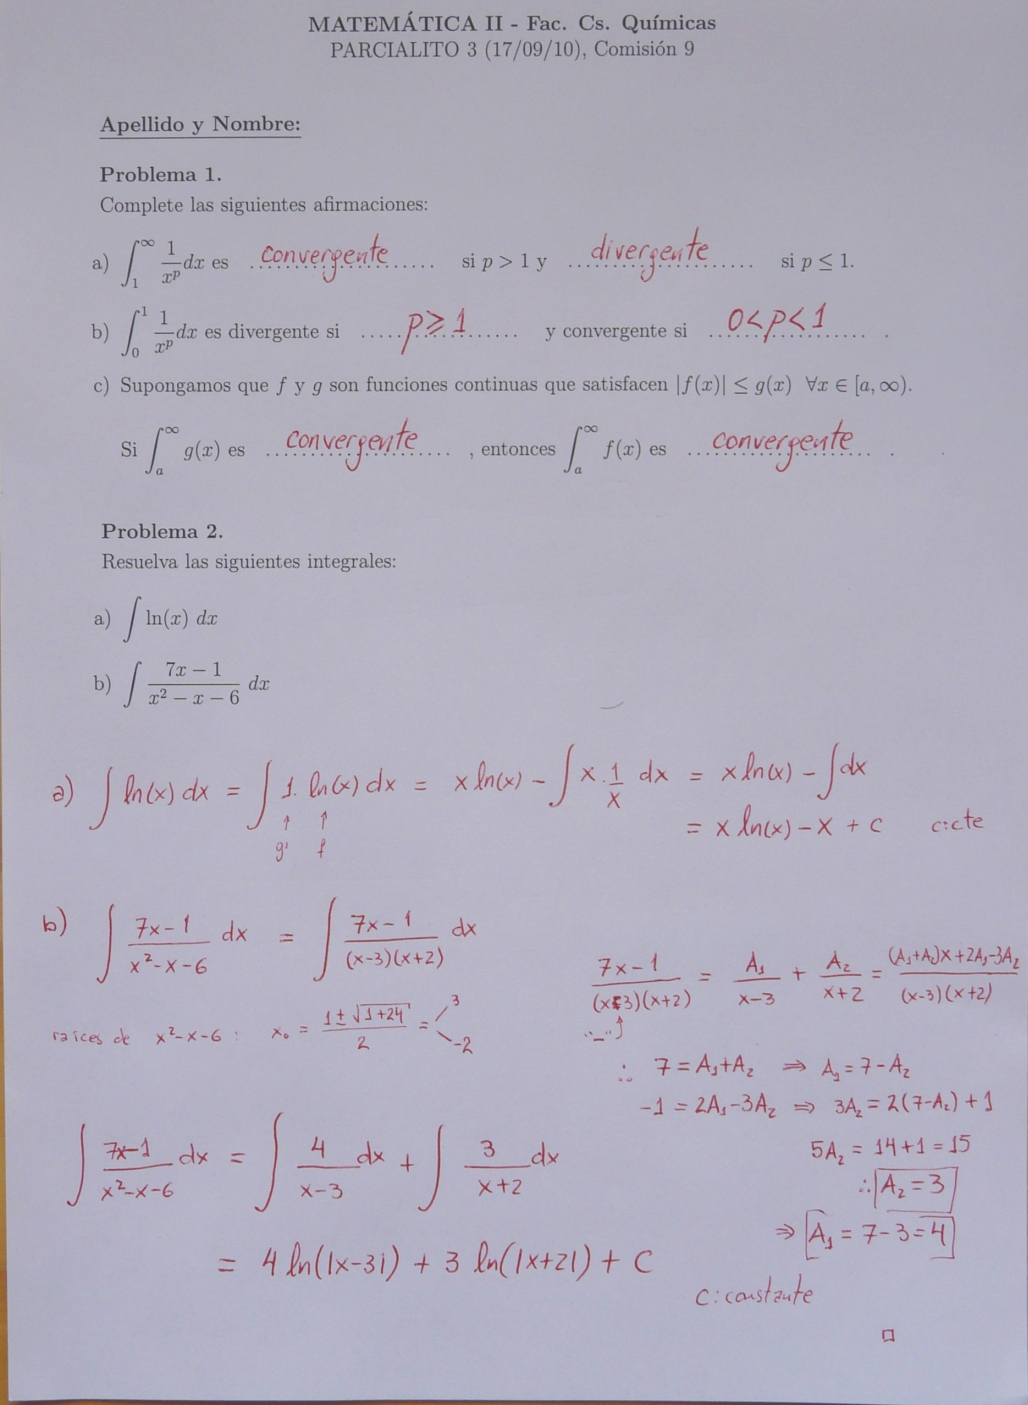 MATEMÁTICA II - Fac. Cs. Químicas
PARCIALITO 3 (17/09/10), Comisión 9
Apellido y Nombre:
Problema 1.
Complete las siguientes afirmaciones:
a) ∫₁^∞ 1/x^p dx es ..convergente..... si p > 1 y ..divergente..... si p ≤ 1.
b) ∫₀¹ 1/x^p dx es divergente si .....p ≥ 1....... y convergente si ..0<p<1..... .
c) Supongamos que f y g son funciones continuas que satisfacen |f(x)| ≤ g(x) ∀x ∈ [a, ∞).
Si ∫ₐ^∞ g(x) es ..convergente..... , entonces ∫ₐ^∞ f(x) es ..convergente..... .
Problema 2.
Resuelva las siguientes integrales:
a) ∫ ln(x) dx
b) ∫ (7x − 1)/(x² − x − 6) dx
a) ∫ ln(x) dx = ∫ 1. ln(x) dx = x ln(x) − ∫ x . 1/x dx = x ln(x) − ∫ dx
↑ ↑
g' f
= x ln(x) − x + c c:cte
b) ∫ (7x−1)/(x²−x−6) dx = ∫ (7x−1)/((x−3)(x+2)) dx
(7x−1)/((x−3)(x+2)) = A₁/(x−3) + A₂/(x+2) = ((A₁+A₂)x+2A₁−3A₂)/((x−3)(x+2))
raíces de x²−x−6 : x₀ = (1±√(1+24))/2 = 3
-2
∴ 7 = A₁+A₂ ⇒ A₁ = 7−A₂
−1 = 2A₁−3A₂ ⇒ 3A₂ = 2(7−A₂)+1
5A₂ = 14+1 = 15
∴ A₂ = 3
⇒ A₁ = 7−3 = 4
∫ (7x−1)/(x²−x−6) dx = ∫ 4/(x−3) dx + ∫ 3/(x+2) dx
= 4 ln(|x−3|) + 3 ln(|x+2|) + C
C: constante